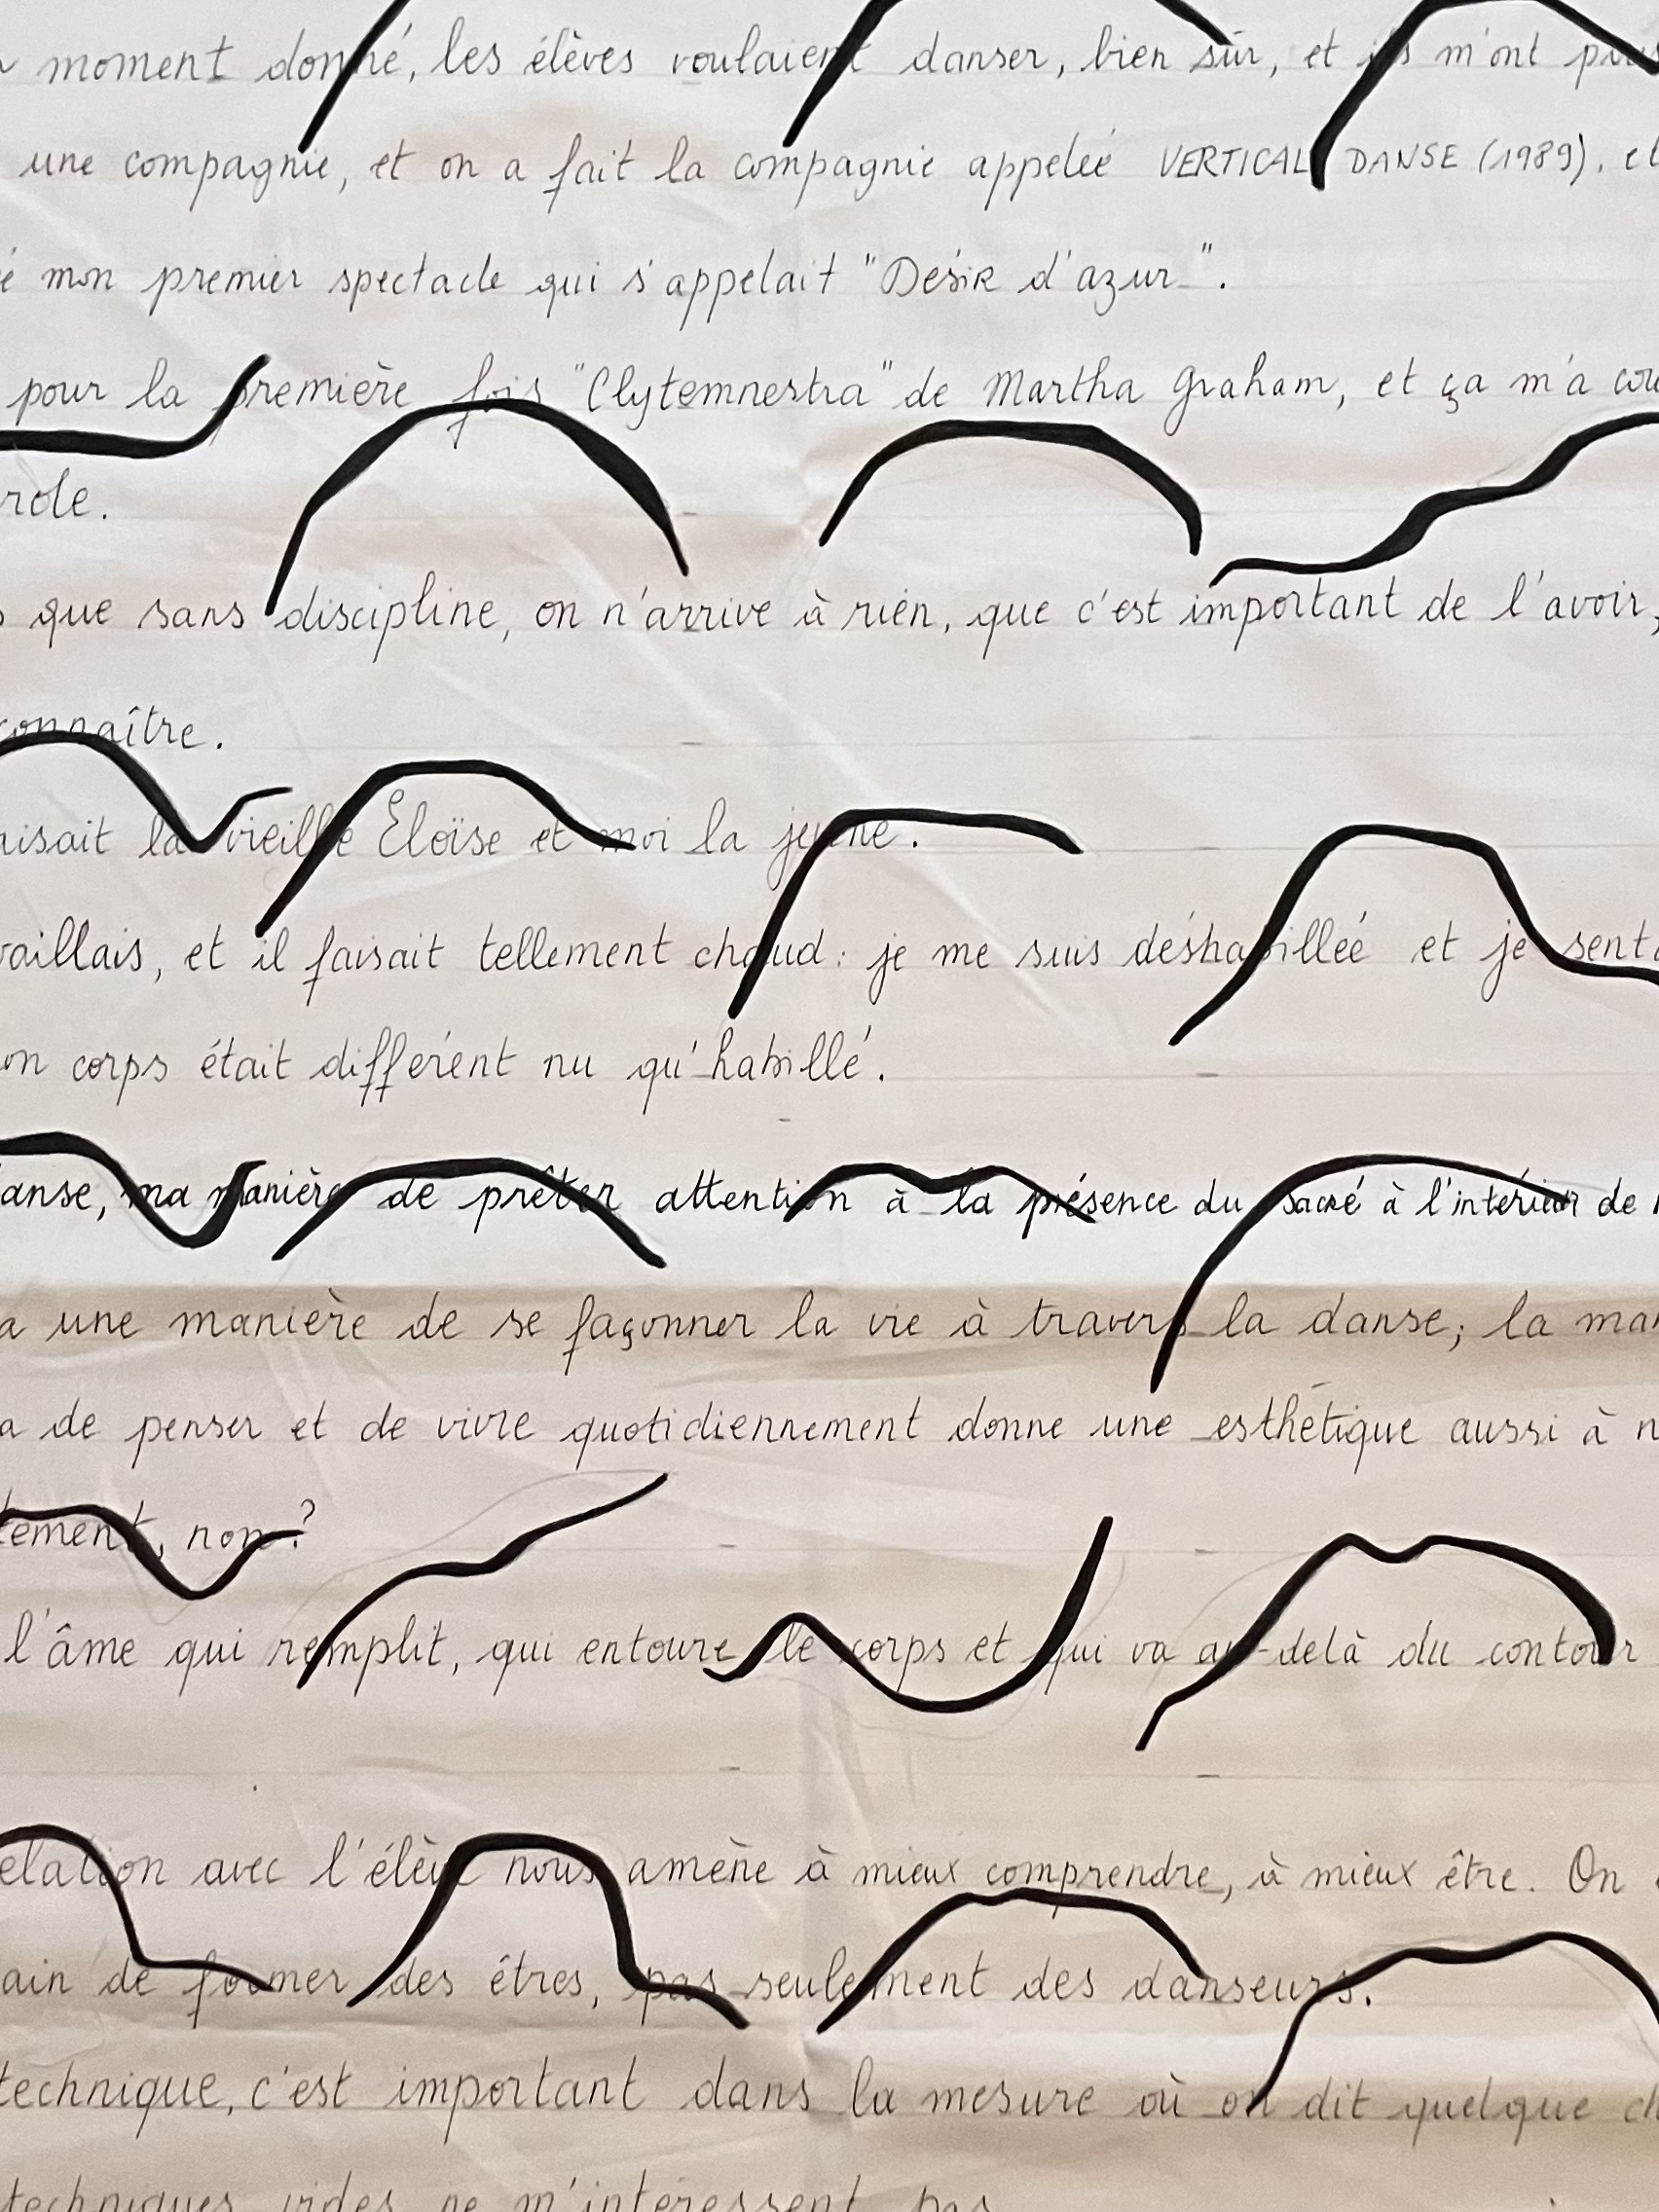 moment donné, les élèves voulaient danser, bien sûr, et ils m'ont
une compagnie, et on a fait la compagnie appelée VERTICAL DANSE (1989). et
mon premier spectacle qui s'appelait "Désir d'azur".
pour la première fois "Clytemnestra" de Martha Graham, et ça m'a
role.
que sans discipline, on n'arrive à rien, que c'est important de l'avoir,
connaître.
aisait la vieille Éloïse et moi la jeune.
vaillais, et il faisait tellement chaud : je me suis déshabillée et je
on corps était différent nu qu'habillé.
anse, ma manière de prêter attention à la présence du sacré à l'intérieur de
a une manière de se façonner la vie à travers la danse; la
a de penser et de vivre quotidiennement donne une esthétique aussi à
tement, non ?
l'âme qui remplit, qui entoure le corps et qui va au-delà du contour
elation avec l'élève nous amène à mieux comprendre, à mieux être. On
ain de former des êtres, pas seulement des danseurs.
technique, c'est important dans la mesure où on dit quelque
techniques vides ne m'intéressent pas